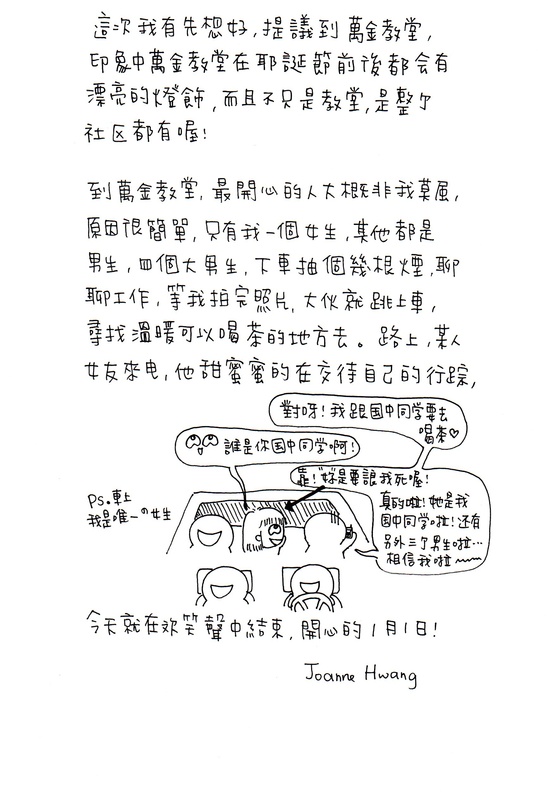 這次我有先想好,提議到萬金教堂,
印象中萬金教堂在耶誕節前後都会有
漂亮的燈飾,而且不只是教堂,是整个
社区都有喔!
到萬金教堂,最開心的人大概非我莫屈,
原因很簡單,只有我一個女生,其他都是
男生,四個大男生,下車抽個幾根煙,聊
聊工作,等我拍完照片,大伙就跳上車,
尋找溫暖可以喝茶的地方去。路上,某人
女友來电,他甜蜜蜜的在交待自己的行踪,
對呀!我跟国中同学要去
喝茶♡
誰是你国中同学啊!
靠!妳是要讓我死喔!
真的啦!她是我
国中同学啦!还有
另外三个男生啦…
相信我啦~~~
PS.車上
我是唯一の女生
今天就在欢笑聲中結束,開心的1月1日!
Joanne Hwang